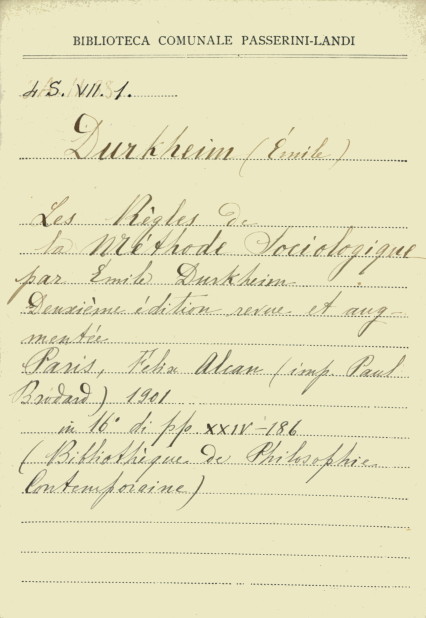 BIBLIOTECA COMUNALE PASSERINI-LANDI
4 S. VII. 1.
Durkheim (Émile)
Les Règles de
la Méthode Sociologique
par Émile Durkheim
Deuxième édition revue et aug-
mentée
Paris, Félix Alcan (imp. Paul
Brodard) 1901
in 16° di pp. XXIV-186
(Bibliothèque de Philosophie
Contemporaine)